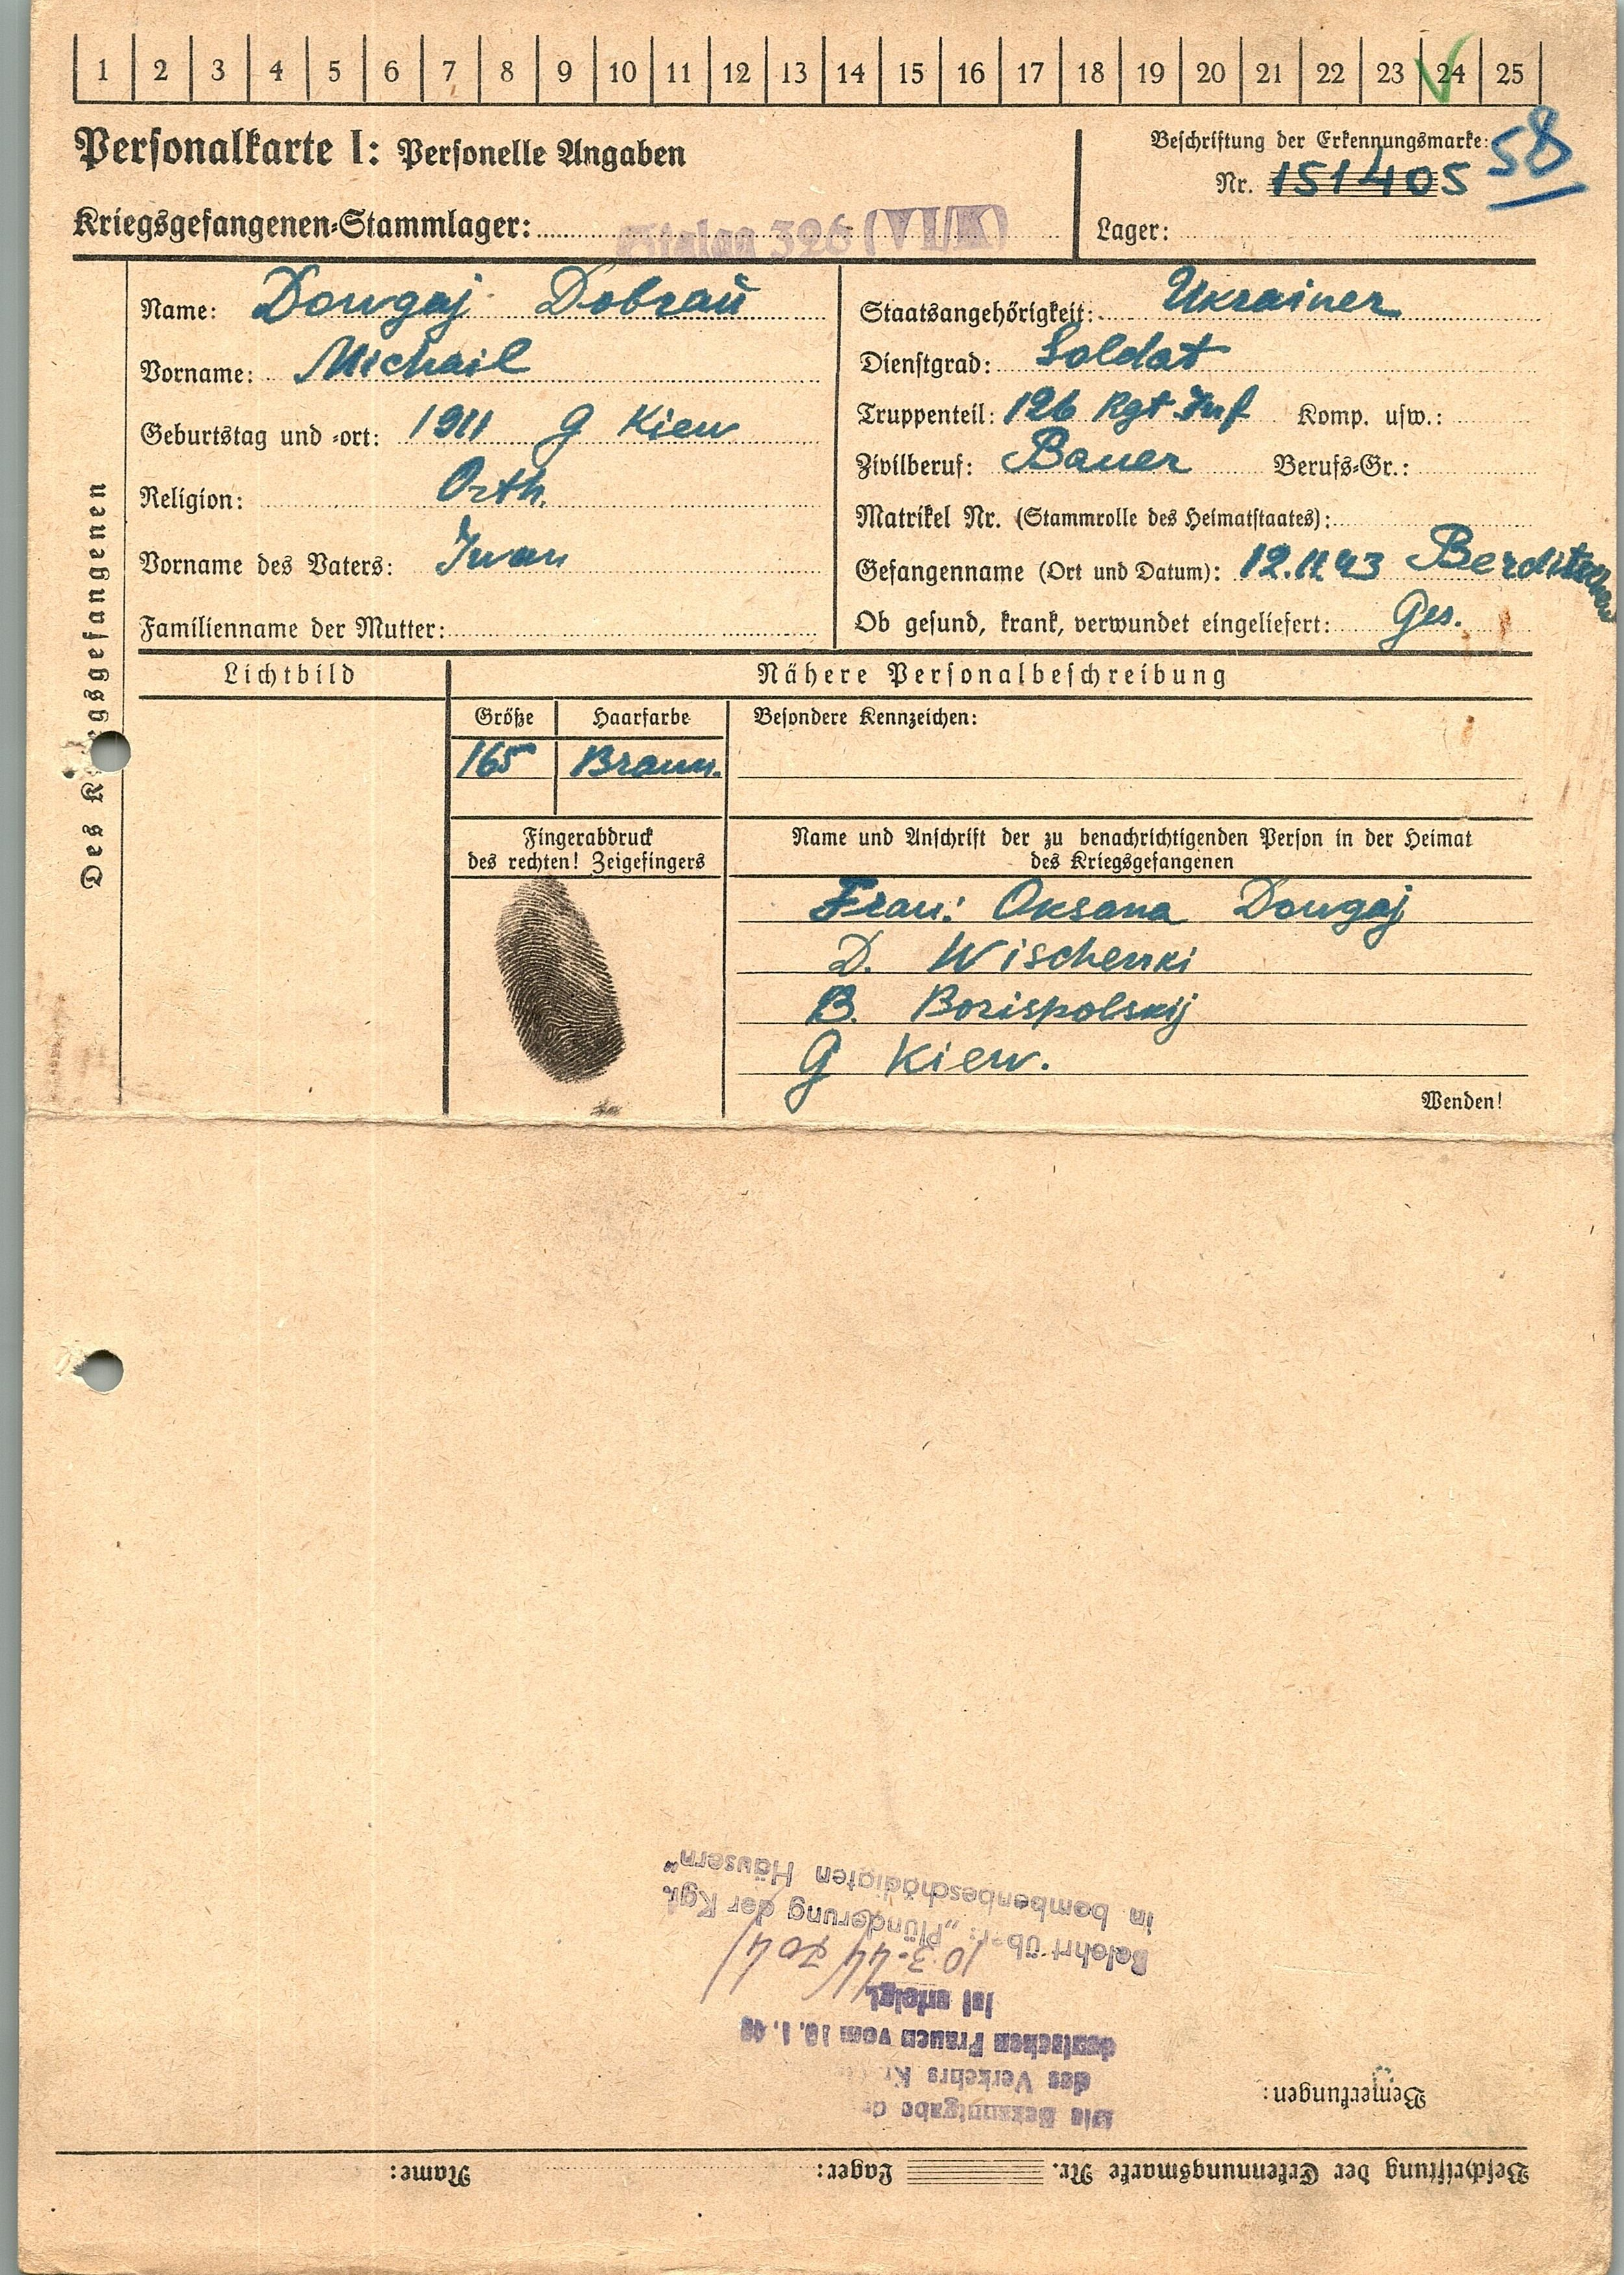 1 2 3 4 5 6 7 8 9 10 11 12 13 14 15 16 17 18 19 20 21 22 23 24 25
58
Personalkarte I: Personelle Angaben
Beschriftung der Erkennungsmarke:
Nr. 151405
Kriegsgefangenen-Stammlager: Stalag 326 (VI/K)
Lager:
Des Kriegsgefangenen
Name: Dowgaj
Staatsangehörigkeit: Ukrainer
Vorname: Michail
Dienstgrad: Soldat
Geburtstag und -ort: 1911 G Kiew
Truppenteil: 126 Rgt Inf Komp. usw.:
Zivilberuf: Bauer Berufs-Gr.:
Religion: Orth.
Matrikel Nr. (Stammrolle des Heimatstaates):
Vorname des Vaters: Iwan
Gefangenname (Ort und Datum): 12.11.43
Familienname der Mutter:
Ob gesund, krank, verwundet eingeliefert: Ges.
Lichtbild
Nähere Personalbeschreibung
Größe
Haarfarbe
Besondere Kennzeichen:
165
Braun.
Fingerabdruck
des rechten! Zeigefingers
Name und Anschrift der zu benachrichtigenden Person in der Heimat
des Kriegsgefangenen
Frau: Oksana Dowgaj
D. Wischenki
B. Borispolskij
G Kiew.
Wenden!
Beschriftung der Erkennungsmarke Nr. Lager: Name:
Bemerkungen:
Die Bekanntgabe
des Verkehrs
deutschen Frauen vom 10.1.40
ist erfolgt
10.3.44
Belehrt über: „Plünderung der Kgf.
in bombenbeschädigten Häusern“